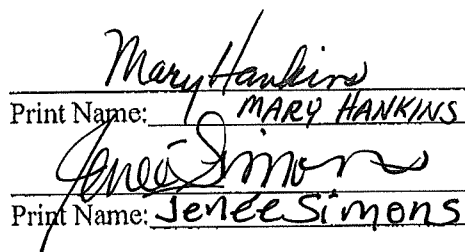 Mary Hankins
Print Name: MARY HANKINS
Jeneé Simons
Print Name: Jenee Simons